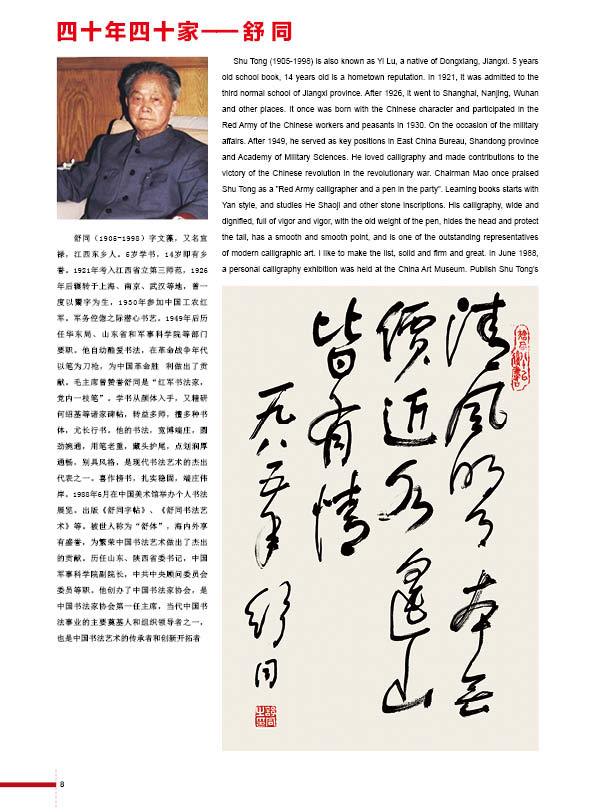 四十年四十家——舒同
Shu Tong (1905-1998) is also known as Yi Lu, a native of Dongxiang, Jiangxi. 5 years
old school book, 14 years old is a hometown reputation. In 1921, it was admitted to the
third normal school of Jiangxi province. After 1926, it went to Shanghai, Nanjing, Wuhan
and other places. It once was born with the Chinese character and participated in the
Red Army of the Chinese workers and peasants in 1930. On the occasion of the military
affairs. After 1949, he served as key positions in East China Bureau, Shandong province
and Academy of Military Sciences. He loved calligraphy and made contributions to the
victory of the Chinese revolution in the revolutionary war. Chairman Mao once praised
Shu Tong as a "Red Army calligrapher and a pen in the party". Learning books starts with
Yan style, and studies He Shaoji and other stone inscriptions. His calligraphy, wide and
dignified, full of vigor and vigor, with the old weight of the pen, hides the head and protect
the tail, has a smooth and smooth point, and is one of the outstanding representatives
of modern calligraphic art. I like to make the list, solid and firm and great. In June 1988,
a personal calligraphy exhibition was held at the China Art Museum. Publish Shu Tong's
舒同（1905-1998）字文藻，又名宜
禄，江西东乡人。5岁学书，14岁即有乡
誉。1921年考入江西省立第三师范，1926
年后辗转于上海、南京、武汉等地，曾一
度以鬻字为生，1930年参加中国工农红
军。军务倥偬之际潜心书艺。1949年后历
任华东局、山东省和军事科学院等部门
要职。他自幼酷爱书法，在革命战争年代
以笔为刀枪，为中国革命胜 利做出了贡
献。毛主席曾赞誉舒同是“红军书法家，
党内一枝笔”。学书从颜体入手，又精研
何绍基等诸家碑帖，转益多师，擅多种书
体，尤长行书。他的书法，宽博端庄，圆
劲婉通，用笔老重，藏头护尾，点划润厚
通畅，别具风格，是现代书法艺术的杰出
代表之一。喜作榜书，扎实稳固，端庄伟
岸。1988年6月在中国美术馆举办个人书法
展览。出版《舒同字帖》、《舒同书法艺
术》等。被世人称为“舒体”，海内外享
有盛誉，为繁荣中国书法艺术做出了杰出
的贡献。历任山东、陕西省委书记，中国
军事科学院副院长，中共中央顾问委员会
委员等职。他创办了中国书法家协会，是
中国书法家协会第一任主席，当代中国书
法事业的主要奠基人和组织领导者之一，
也是中国书法艺术的传承者和创新开拓者
清风明月本无
價近水遠山
皆有情
一九八五年 舒同
8